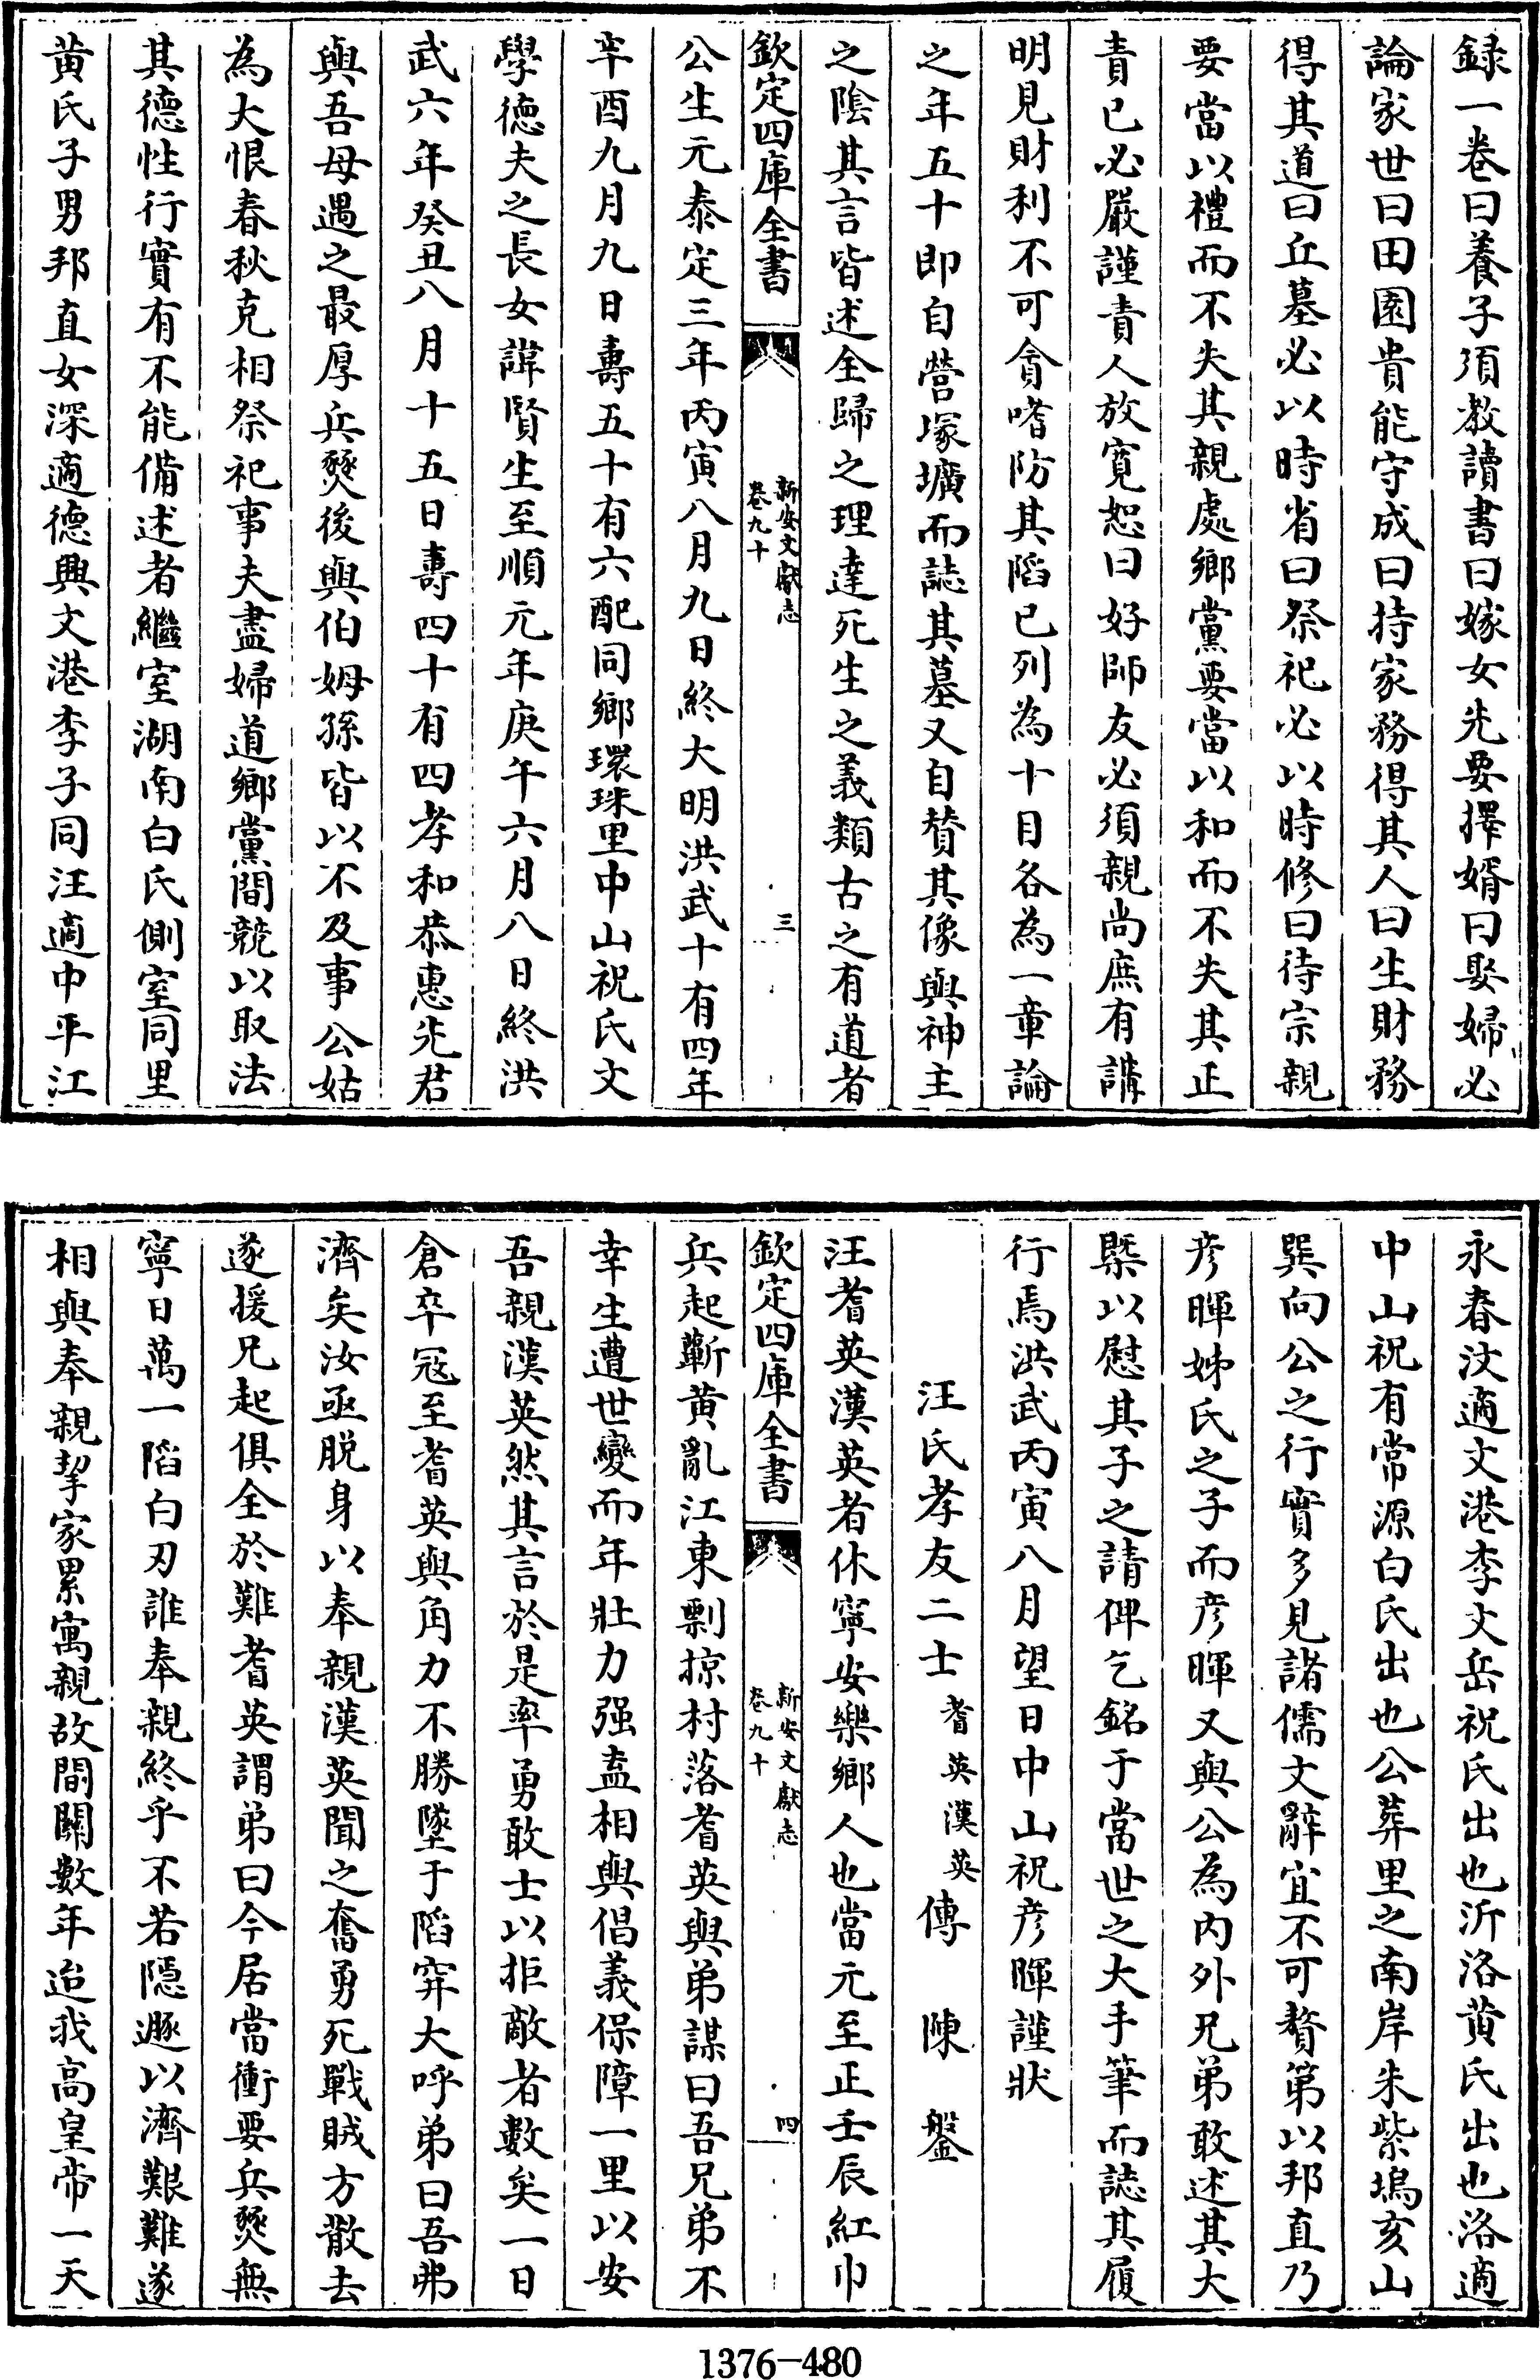 録一卷曰養子須教讀書曰嫁女先要擇婿曰娶婦必
論家世曰田園貴能守成曰持家務得其人曰生財務
得其道曰丘墓必以時省曰祭祀必以時修曰待宗親
要當以禮而不失其親處鄉黨要當以和而不失其正
責已必嚴謹責人放寛恕曰好師友必須親尚庶有講
明見財利不可貪嗜防其䧟已列為十目各為一章論
之年五十即自營塚壙而誌其墓又自賛其像與神主
之陰其言皆述全歸之理達死生之義類古之有道者
欽定四庫全書
新安文獻志
卷九十
三
公生元泰定三年丙寅八月九日終大明洪武十有四年
辛酉九月九日壽五十有六配同鄉環珠里中山祝氏文
學德夫之長女諱賢生至順元年庚午六月八日終洪
武六年癸丑八月十五日壽四十有四孝和恭惠先君
與吾母遇之最厚兵燹後與伯姆孫皆以不及事公姑
為大恨春秋克相祭祀事夫盡婦道鄉黨間競以取法
其德性行實有不能備述者繼室湖南白氏側室同里
黄氏子男邦直女深適德興文港李子同汪適中平江
永春汶適文港李文岳祝氏出也沂洛黄氏出也洛適
中山祝有常源白氏出也公葬里之南岸朱紫塢亥山
巽向公之行實多見諸儒文辭宜不可贅第以邦直乃
彦暉姊氏之子而彦暉又與公為内外兄弟敢述其大
槩以慰其子之請俾乞銘于當世之大手筆而誌其履
行焉洪武丙寅八月望日中山祝彦暉謹狀
汪氏孝友二士耆英漢英傳　陳　鎣
汪耆英漢英者休寧安樂鄉人也當元至正壬辰紅巾
欽定四庫全書
新安文獻志
卷九十
四
兵起蘄黄亂江東剽掠村落耆英與弟謀曰吾兄弟不
幸生遭世變而年壯力强盍相與倡義保障一里以安
吾親漢英然其言於是率勇敢士以拒敵者數矣一日
倉卒冦至耆英與角力不勝墜于䧟穽大呼弟曰吾弗
濟矣汝亟脱身以奉親漢英聞之奮勇死戰賊方散去
遂援兄起俱全於難耆英謂弟曰今居當衝要兵燹無
寧日萬一䧟白刃誰奉親終乎不若隱遯以濟艱難遂
相與奉親挈家累寓親故間關數年迨我高皇帝一天
1376-480